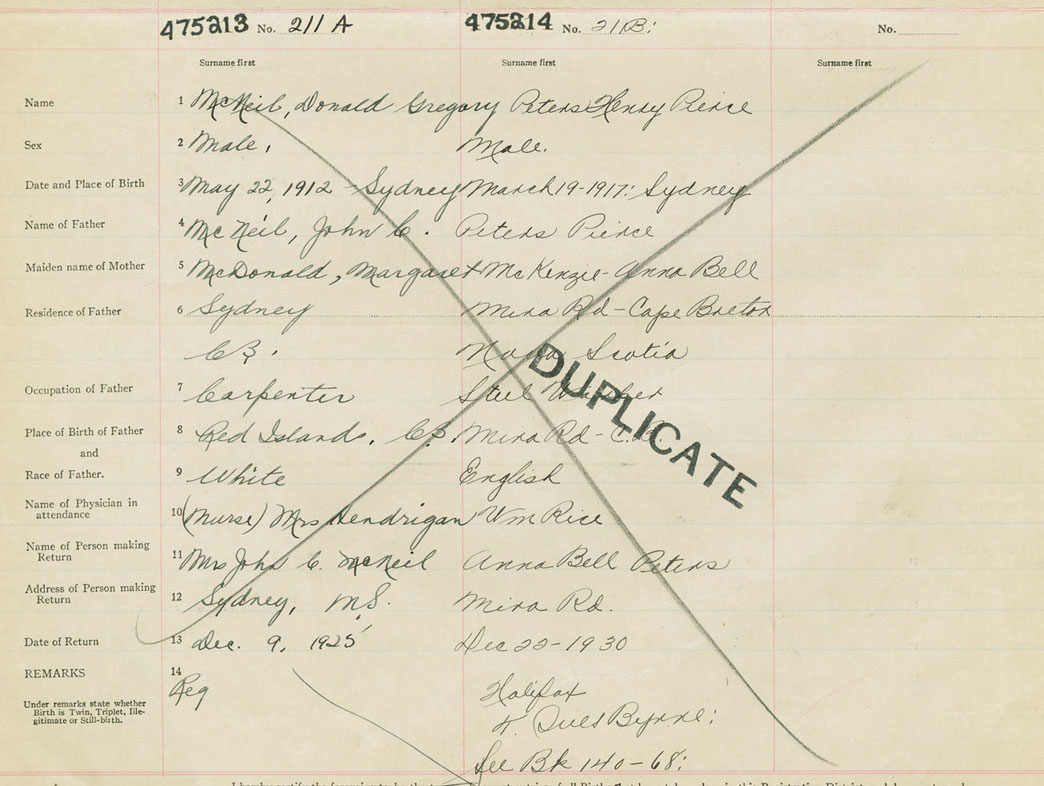 475213 No. 211 A 475214 No. 211B: No.
Surname first Surname first Surname first
Name 1 McNeil, Donald Gregory Peters Henry Pierce
Sex 2 Male, Male.
Date and Place of Birth 3 May 22, 1912 - Sydney March 19-1917: Sydney
Name of Father 4 McNeil, John C. Peters Pierce
Maiden name of Mother 5 McDonald, Margaret McKenzie-Anna Bell
Residence of Father 6 Sydney Mira Rd-Cape Breton
C.B. Nova Scotia
DUPLICATE
Occupation of Father 7 Carpenter Steel
Place of Birth of Father 8 Red Islands, C.B. Mira Rd-C.B.
and
Race of Father. 9 White English
Name of Physician in attendance 10 (Nurse) Mrs Hendrigan Wm Rice
Name of Person making Return 11 Mrs John C. McNeil Anna Bell Peters
Address of Person making Return 12 Sydney, N.S. Mira Rd.
Date of Return 13 Dec. 9, 1925 Dec 22-1930
REMARKS 14 Reg Halifax
Under remarks state whether Birth is Twin, Triplet, Ille-
gitimate or Still-birth. Byrne:
See Bk 140-68: